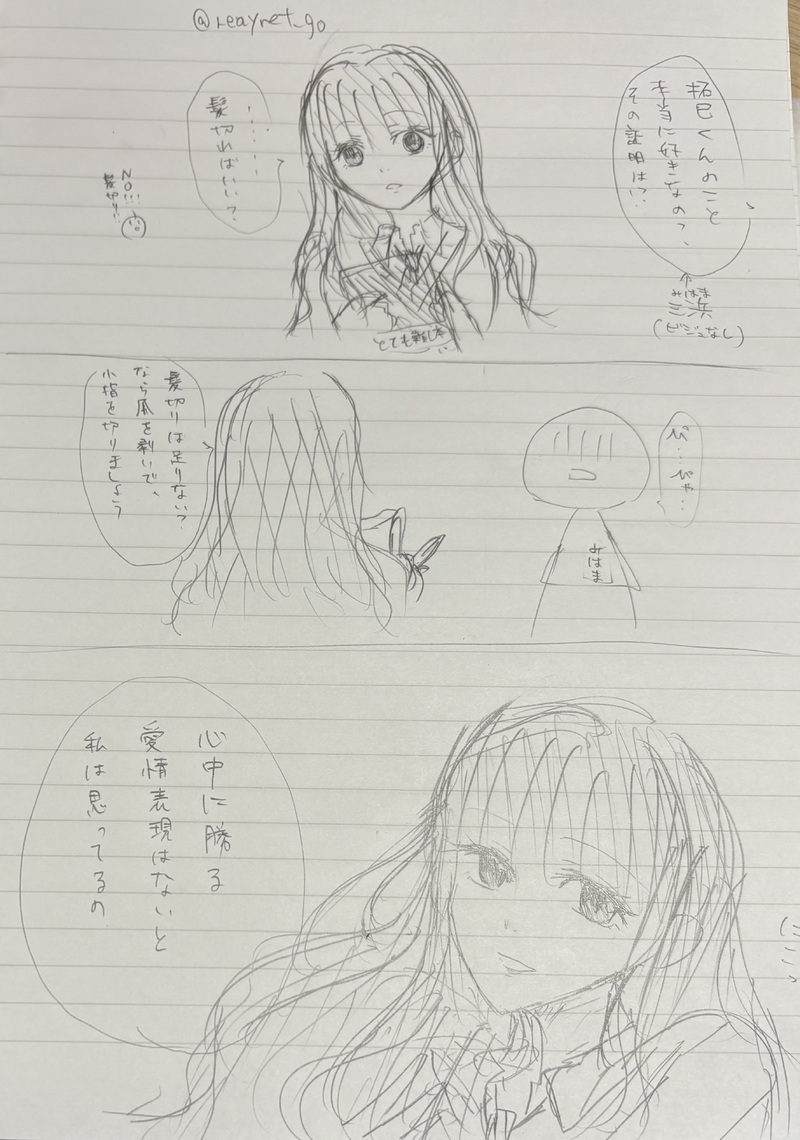 @reaynet_go
拓巳くんのこと
本当に好きなの？、
その証明は？
↑
みはま
三浜
(ビジュなし)
……
髪切ればいい？
NO!!!
髪切り!!
とても難しい
び…びゃ…
みはま
髪切りは足りない？
なら爪を剥いで、
小指を切りましょう
心中に勝る
愛情表現はないと
私は思ってるの
にこっ